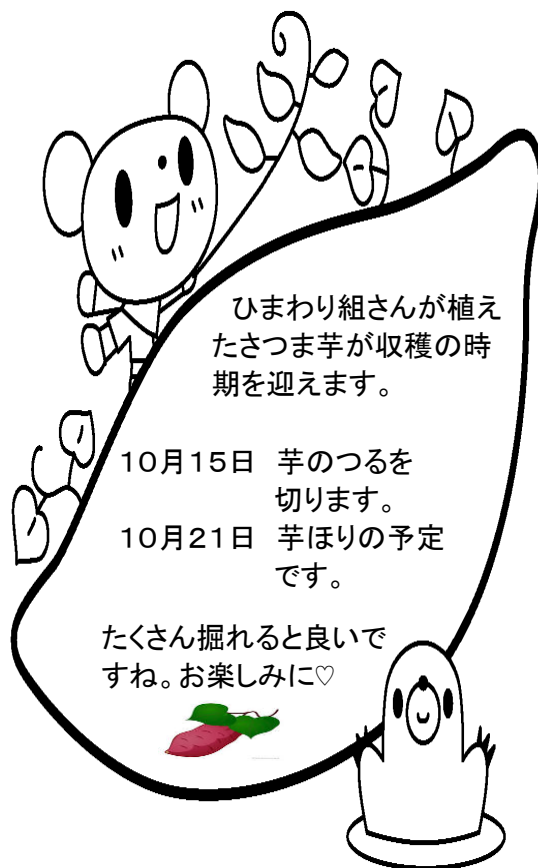 ひまわり組さんが植え
たさつま芋が収穫の時
期を迎えます。
10月15日 芋のつるを
切ります。
10月21日 芋ほりの予定
です。
たくさん掘れると良いで
すね。お楽しみに♡